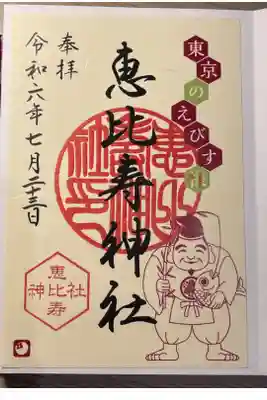 東京のえびす
奉拝
令和六年七月二十三日
恵比寿神社
恵比寿
神社